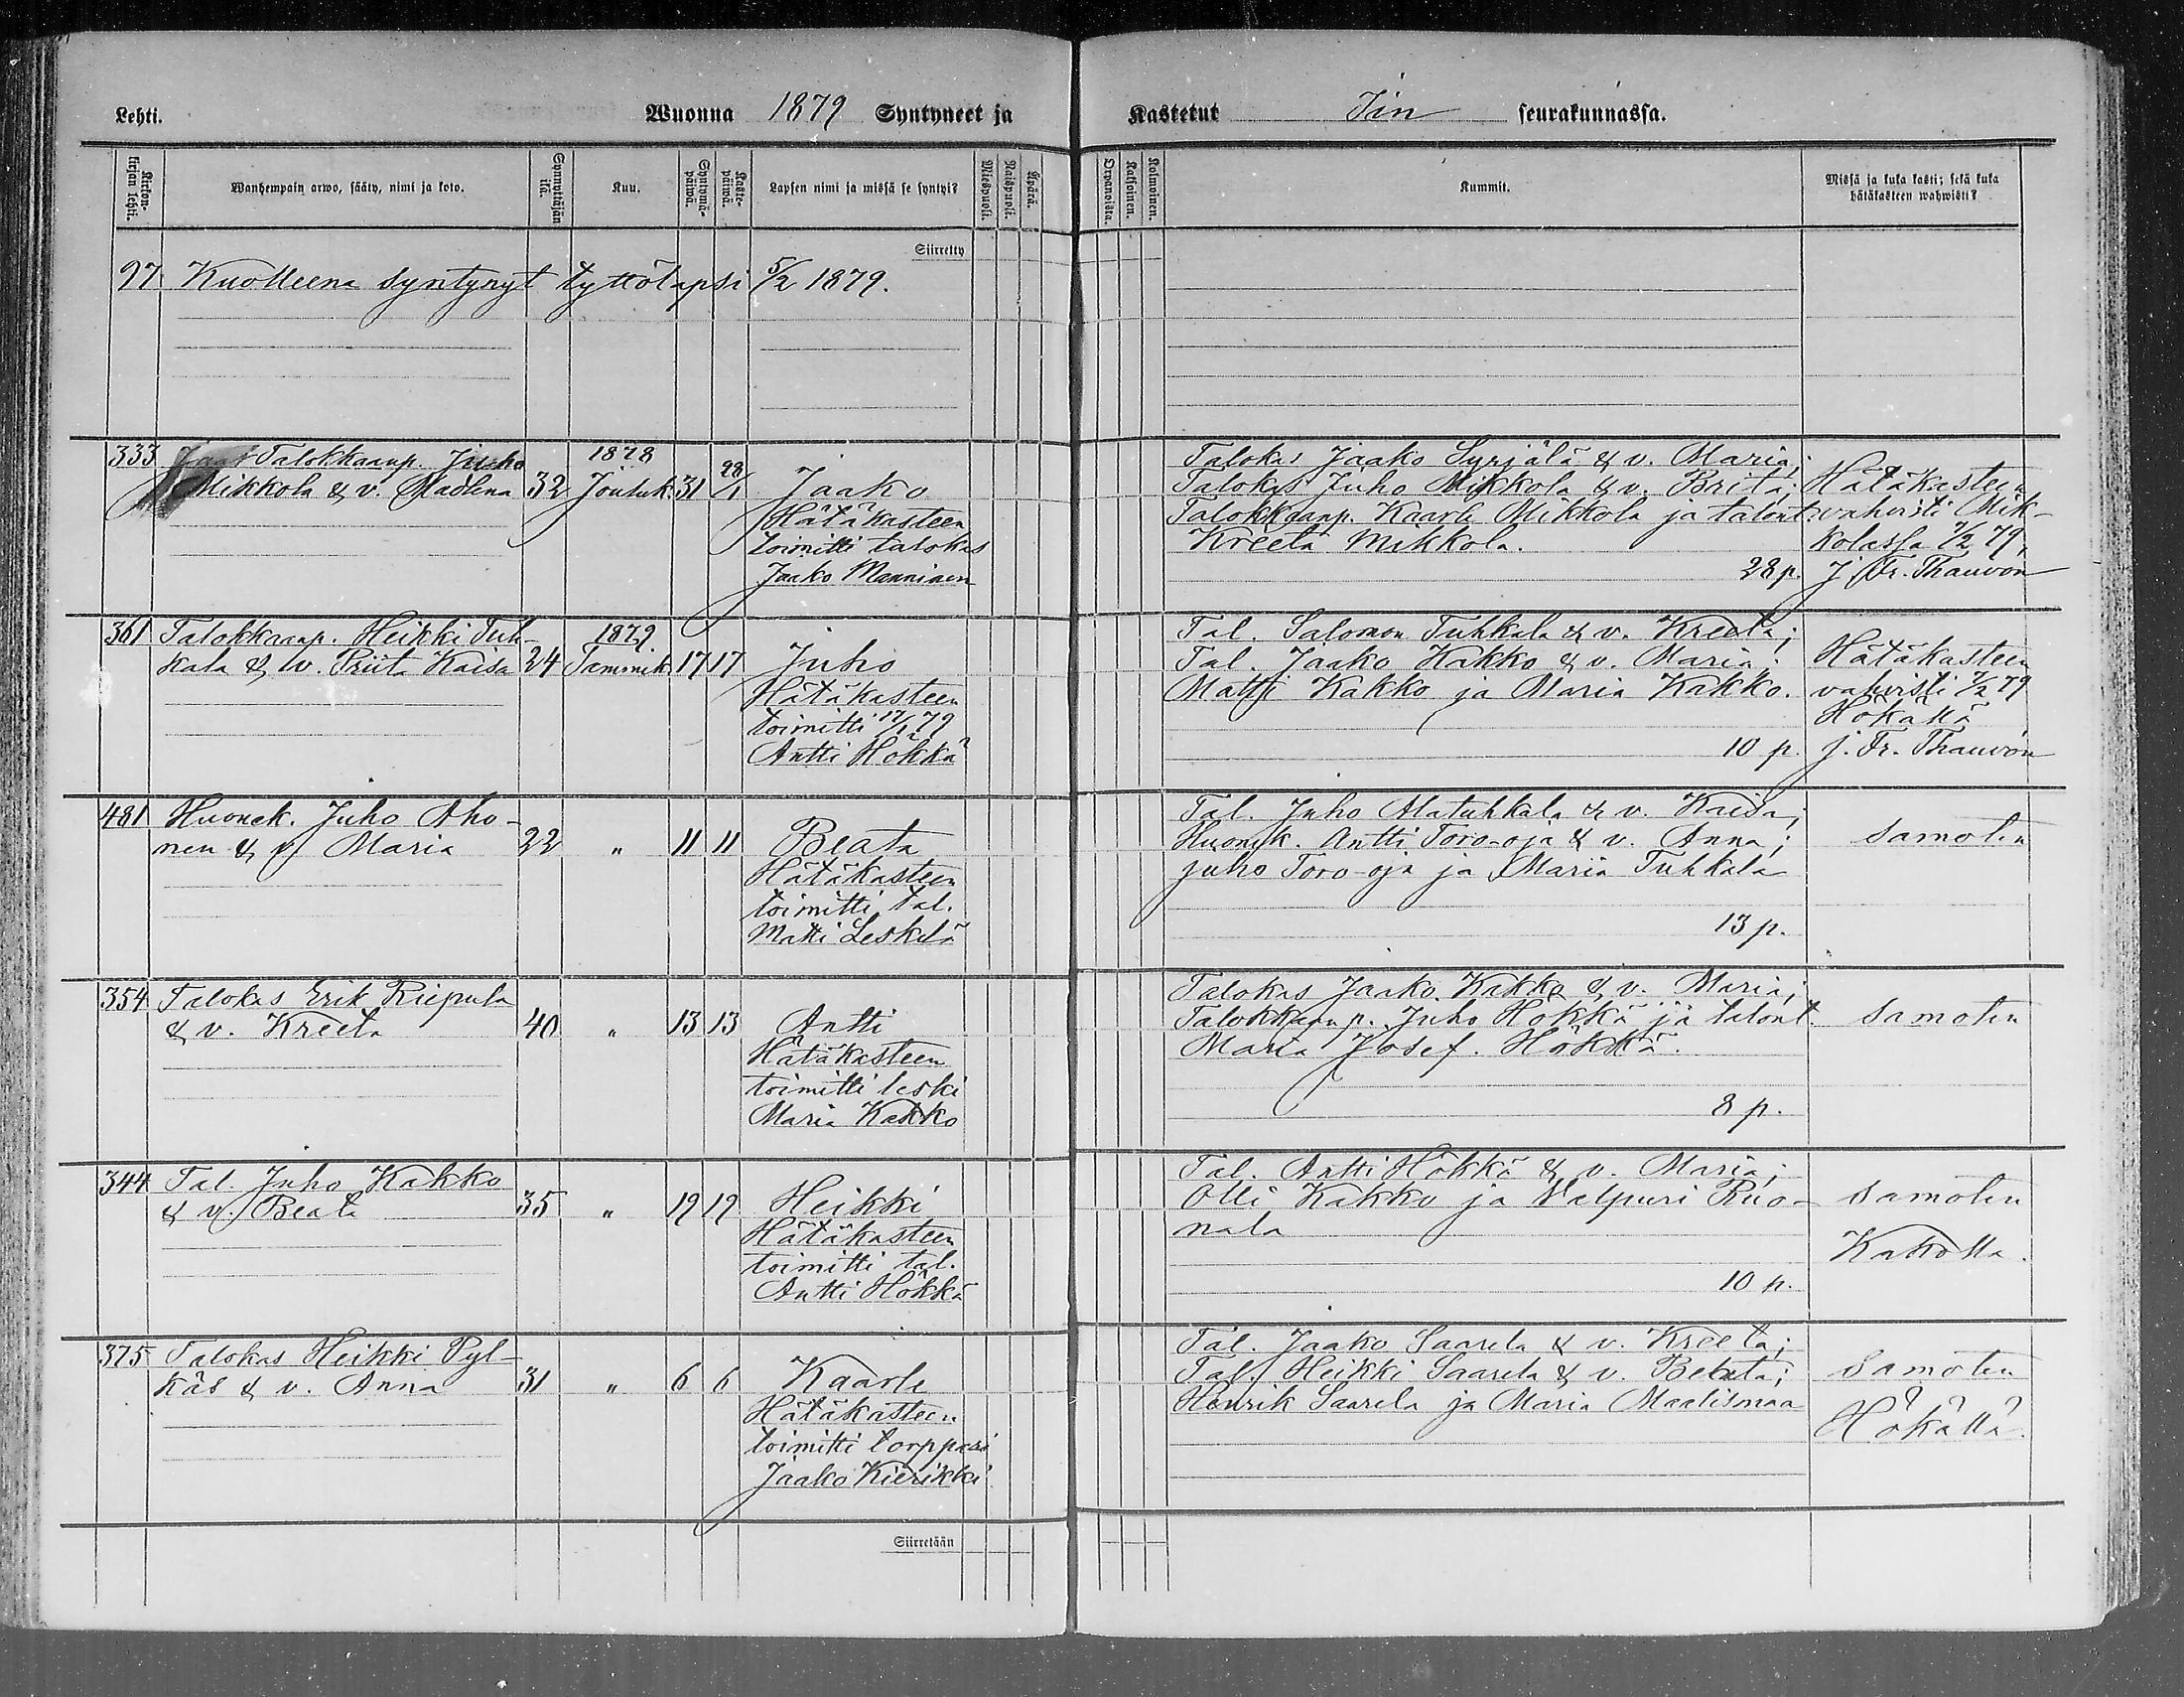 Lehti.
Wuonna 1879 Syntyneet ja Kastetut Iin seurakunnassa.
Rieton-kirjan lehti.
Wanhempain arwo, sääty, nimi ja koto.
Synnyttäjän ikä.
Kuu.
Syntymä-päiwä.
Kaste-päiwä.
Lapsen nimi ja missä se syntyi?
Miespuoli.
Naispuoli.
Äpärä.
Orpanoista.
Kaksoinen.
Kolmoinen.
Kummit.
Missä ja kuka kasti; sekä kuka
hätäkasteen wahwisti?
Siirretty
97 Kuolleena syntynyt tyttölapsi 5/2 1879.
333 Talokkaanp. Juho 1878
Mikkola & v. Madlena 32 Jouluk. 31 28/1 Jaako
Hätäkasteen
toimitti talokas
Jaako Manninen
Talokas Jaako Syrjälä & v. Maria;
Talokas Juho Mikkola & v. Brita;
Talokkaanp. Kaarle Mikkola ja talont.
Kreeta Mikkola.
28 p.
Hätäkasteen
vahvisti Mik-
kolassa 7/2 79,
J. Fr. Thauvón
361 Talokkaanp. Heikki Tuh- 1879
kala & v. Priita Kaisa 24 Tammik. 17 17 Juho
Hätäkasteen
toimitti 17/1 79
Antti Hökkä
Tal. Salomon Tuhkala & v. Kreeta;
Tal. Jaako Kakko & v. Maria;
Matti Kakko ja Maria Kakko.
10 p.
Hätäkasteen
vahvisti 7/2 79
Hökällä
J. Fr. Thauvón
481 Huonek. Juho Aho-
nen & v. Maria 22 " 11 11 Beata
Hätäkasteen
toimitti tal.
Matti Leskelä
Tal. Juho Alatuhkala & v. Kaisa;
Huonek. Antti Toro-oja & v. Anna;
Juho Toro-oja ja Maria Tuhkala
13 p.
Samoten
354 Talokas Erik Riepula
& v. Kreeta 40 " 13 13 Antti
Hätäkasteen
toimitti leski
Maria Kakko
Talokas Jaako Kakko & v. Maria;
Talokkaanp. Juho Hökkä ja talont.
Maria Josef. Hökkä.
8 p.
Samoten
344 Tal. Juho Kakko
& v. Beata 35 " 19 19 Heikki
Hätäkasteen
toimitti tal.
Antti Hökkä
Tal. Antti Hökkä & v. Maria;
Olli Kakko ja Valpuri Ruo-
nala
10 p.
Samoten
Kakolla.
375 Talokas Heikki Pyl-
käs & v. Anna 31 " 6 6 Kaarle
Hätäkasteen
toimitti torppari
Jaako Kierikki
Tal. Jaako Saarela & v. Kreeta;
Tal. Heikki Saarela & v. Beata;
Henrik Saarela ja Maria Maalismaa
Samoten
Hökällä.
Siirretään